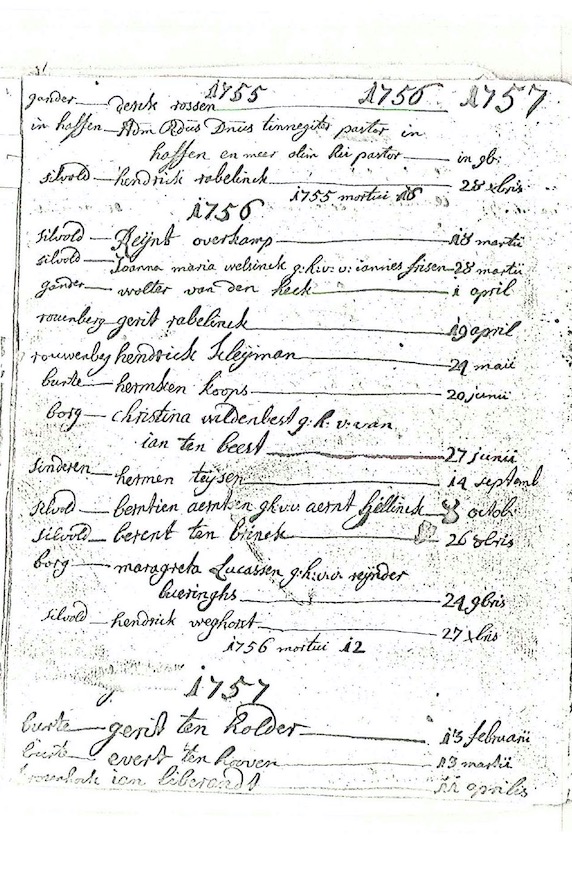 1755 1756 1757
gander derck rossen
in haffen Adm Rdus Dnus tinnegiter pastor in
haffen en meer olim hic pastor in 9b:
silvold hendrick rabelinck 28 xbris
1755 mortui 16
1756
silvold Reijnt overkamp 18 martii
silvold Joanna maria welsinck g.h.v. v: iannes frisen 28 martii
gander wolter van den heck 1 april
rouenberg gerit rabelinck 19 april
rouwenberg hendrick kleijman 29 maii
burte hermken koops 20 junii
borg christina wildenbest g. h. v. van
ian ten beest 27 junii
sinderen hermen teijsen 14 septemb
silvold berntien aernt gh.v.v. aernt hellinck 8 octob
silvold berent ten brinck 26 8bris
borg maragreta Lucassen g.h.v.v. reijnder
lueringhs 24 9bris
silvold hendrick weghorst 27 xbris
1756 mortui 12
1757
burte gerit ten holder 13 februarii
burte evert ten hoven 13 martii
ian liberandt 11 aprilis